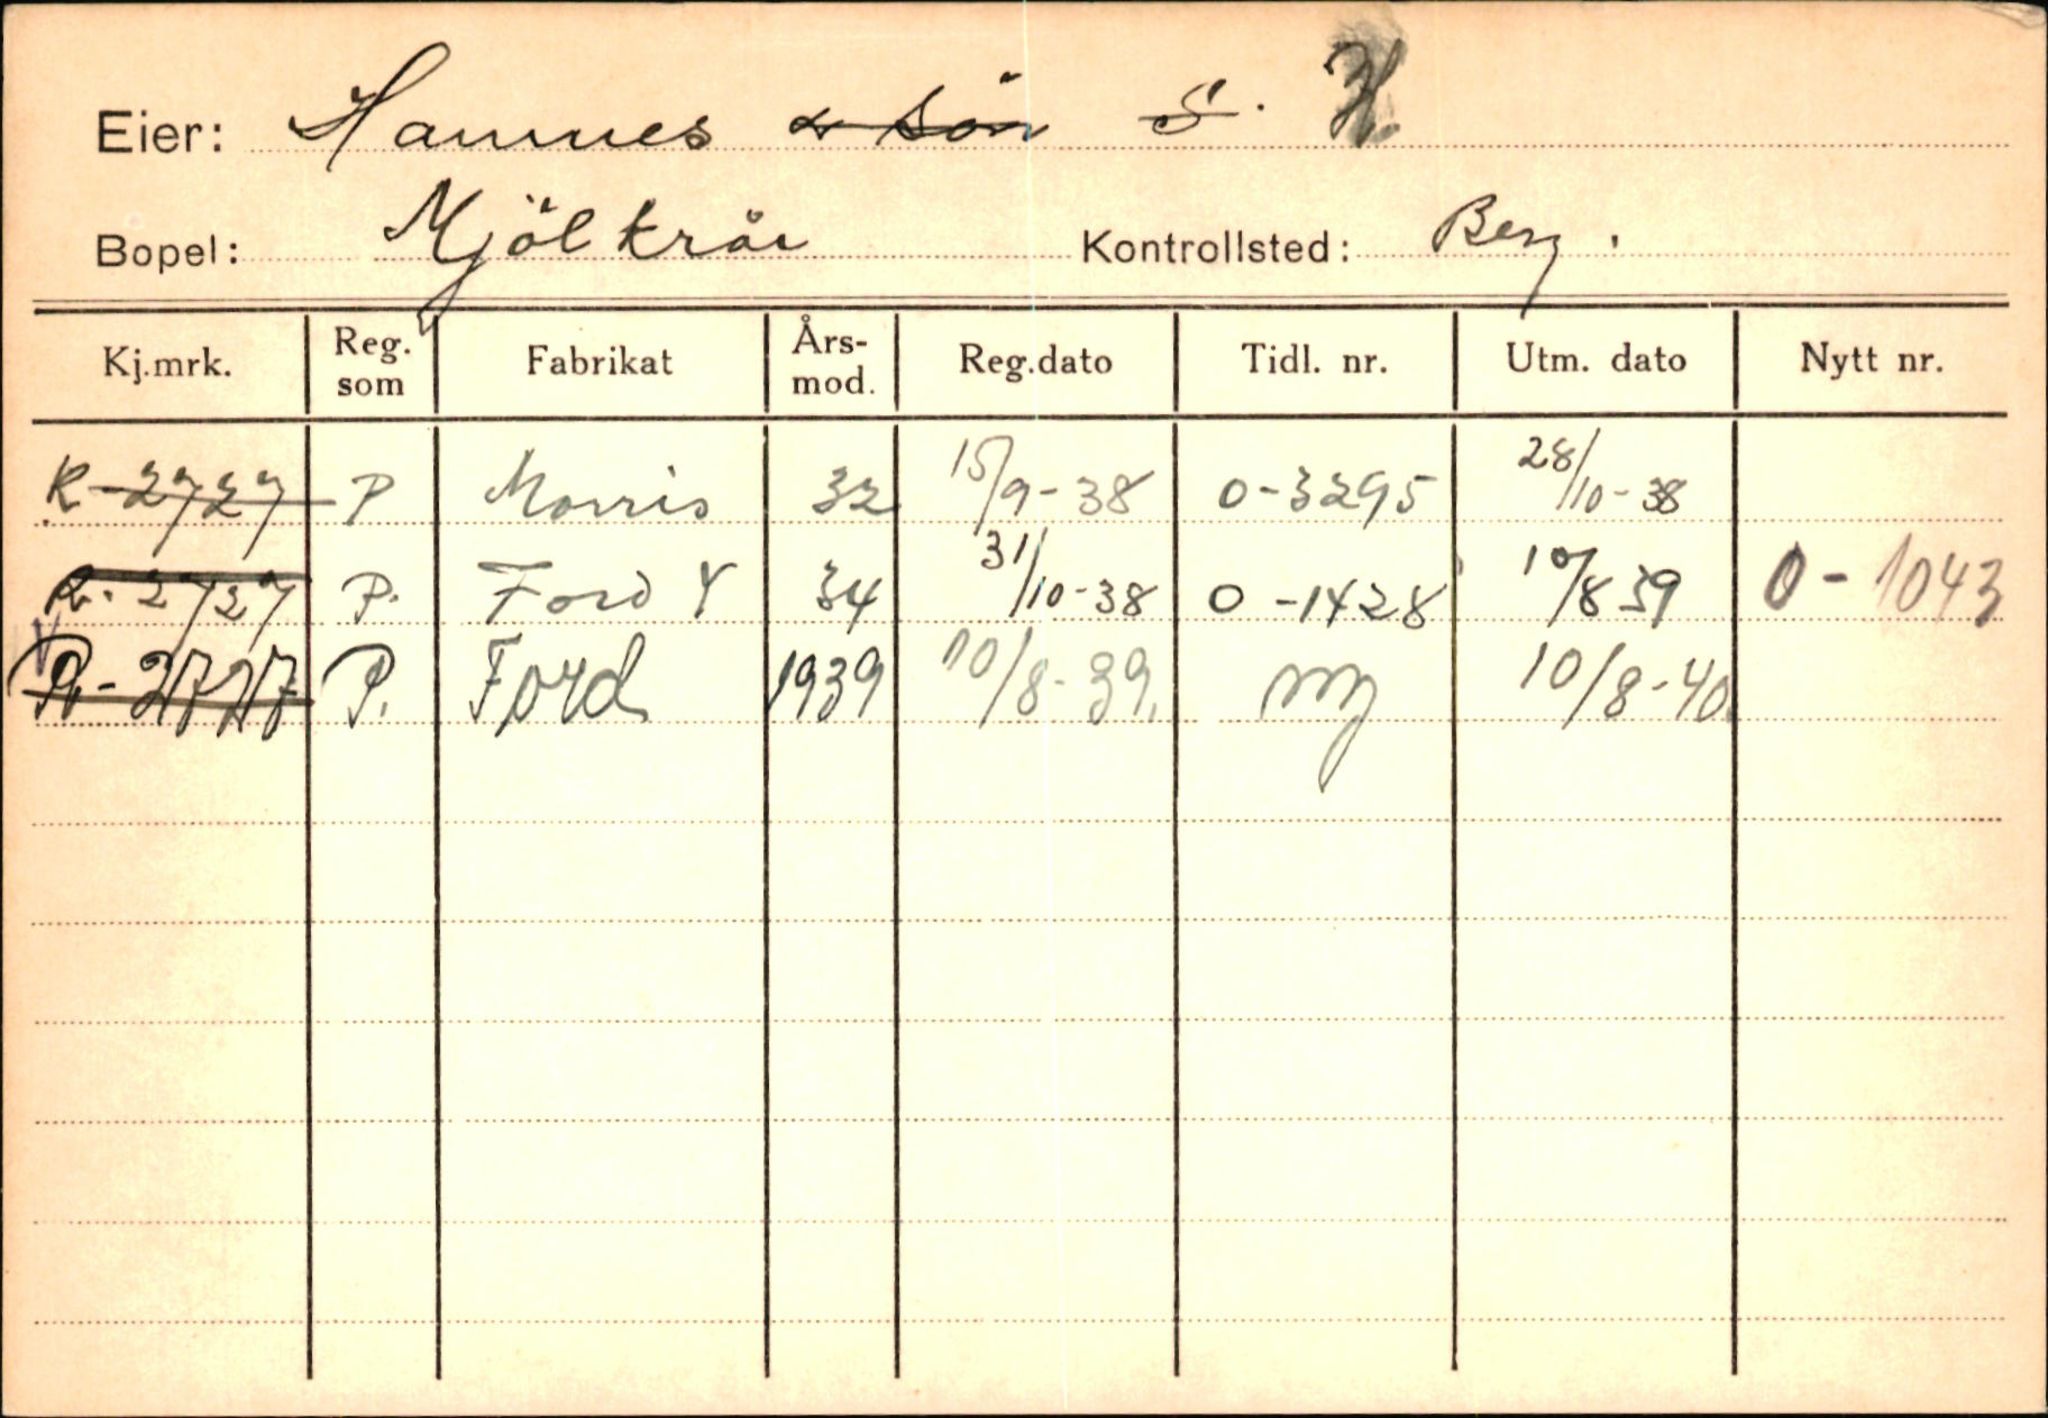 Eier: Hannes & Sön S. H.
Bopel: Mjölkråe Kontrollsted: Berg.
Kj.mrk. Reg. som Fabrikat Års-mod. Reg.dato Tidl. nr. Utm. dato Nytt nr.
R-2727 P Morris 32 15/9-38 O-3295 28/10-38
R-2727 P. Ford Y 34 31/10-38 O-1428 10/8 39 O-1043
R-2727 P. Ford 1939 10/8-39. ny 10/8-40.